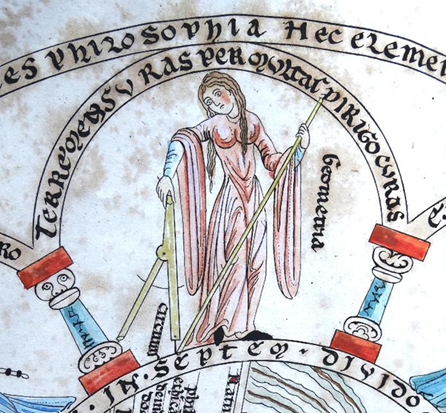 ES PHILOSOPHIA HEC ELEMEN
TERRE MENSURAS PER MULTAS DIRIGO CURAS
Geometria
RO
circinus
. IN . SEPTEM . DIVIDO